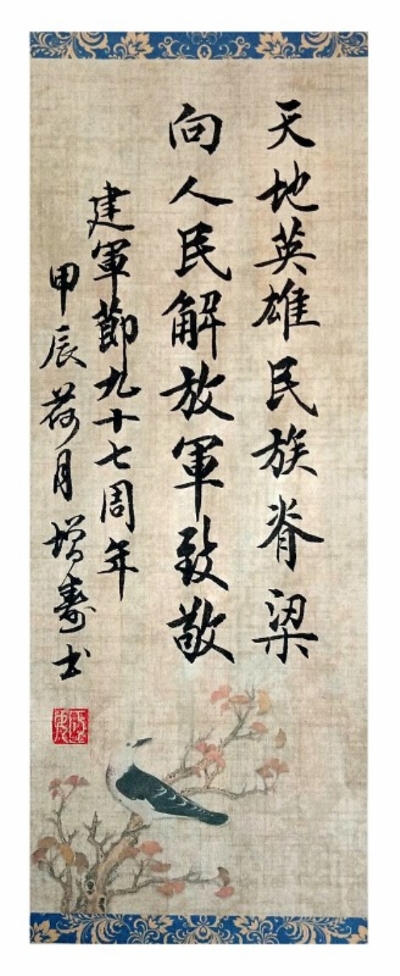 天地英雄民族脊梁
向人民解放軍致敬
建軍節九十七周年
甲辰荷月增壽书